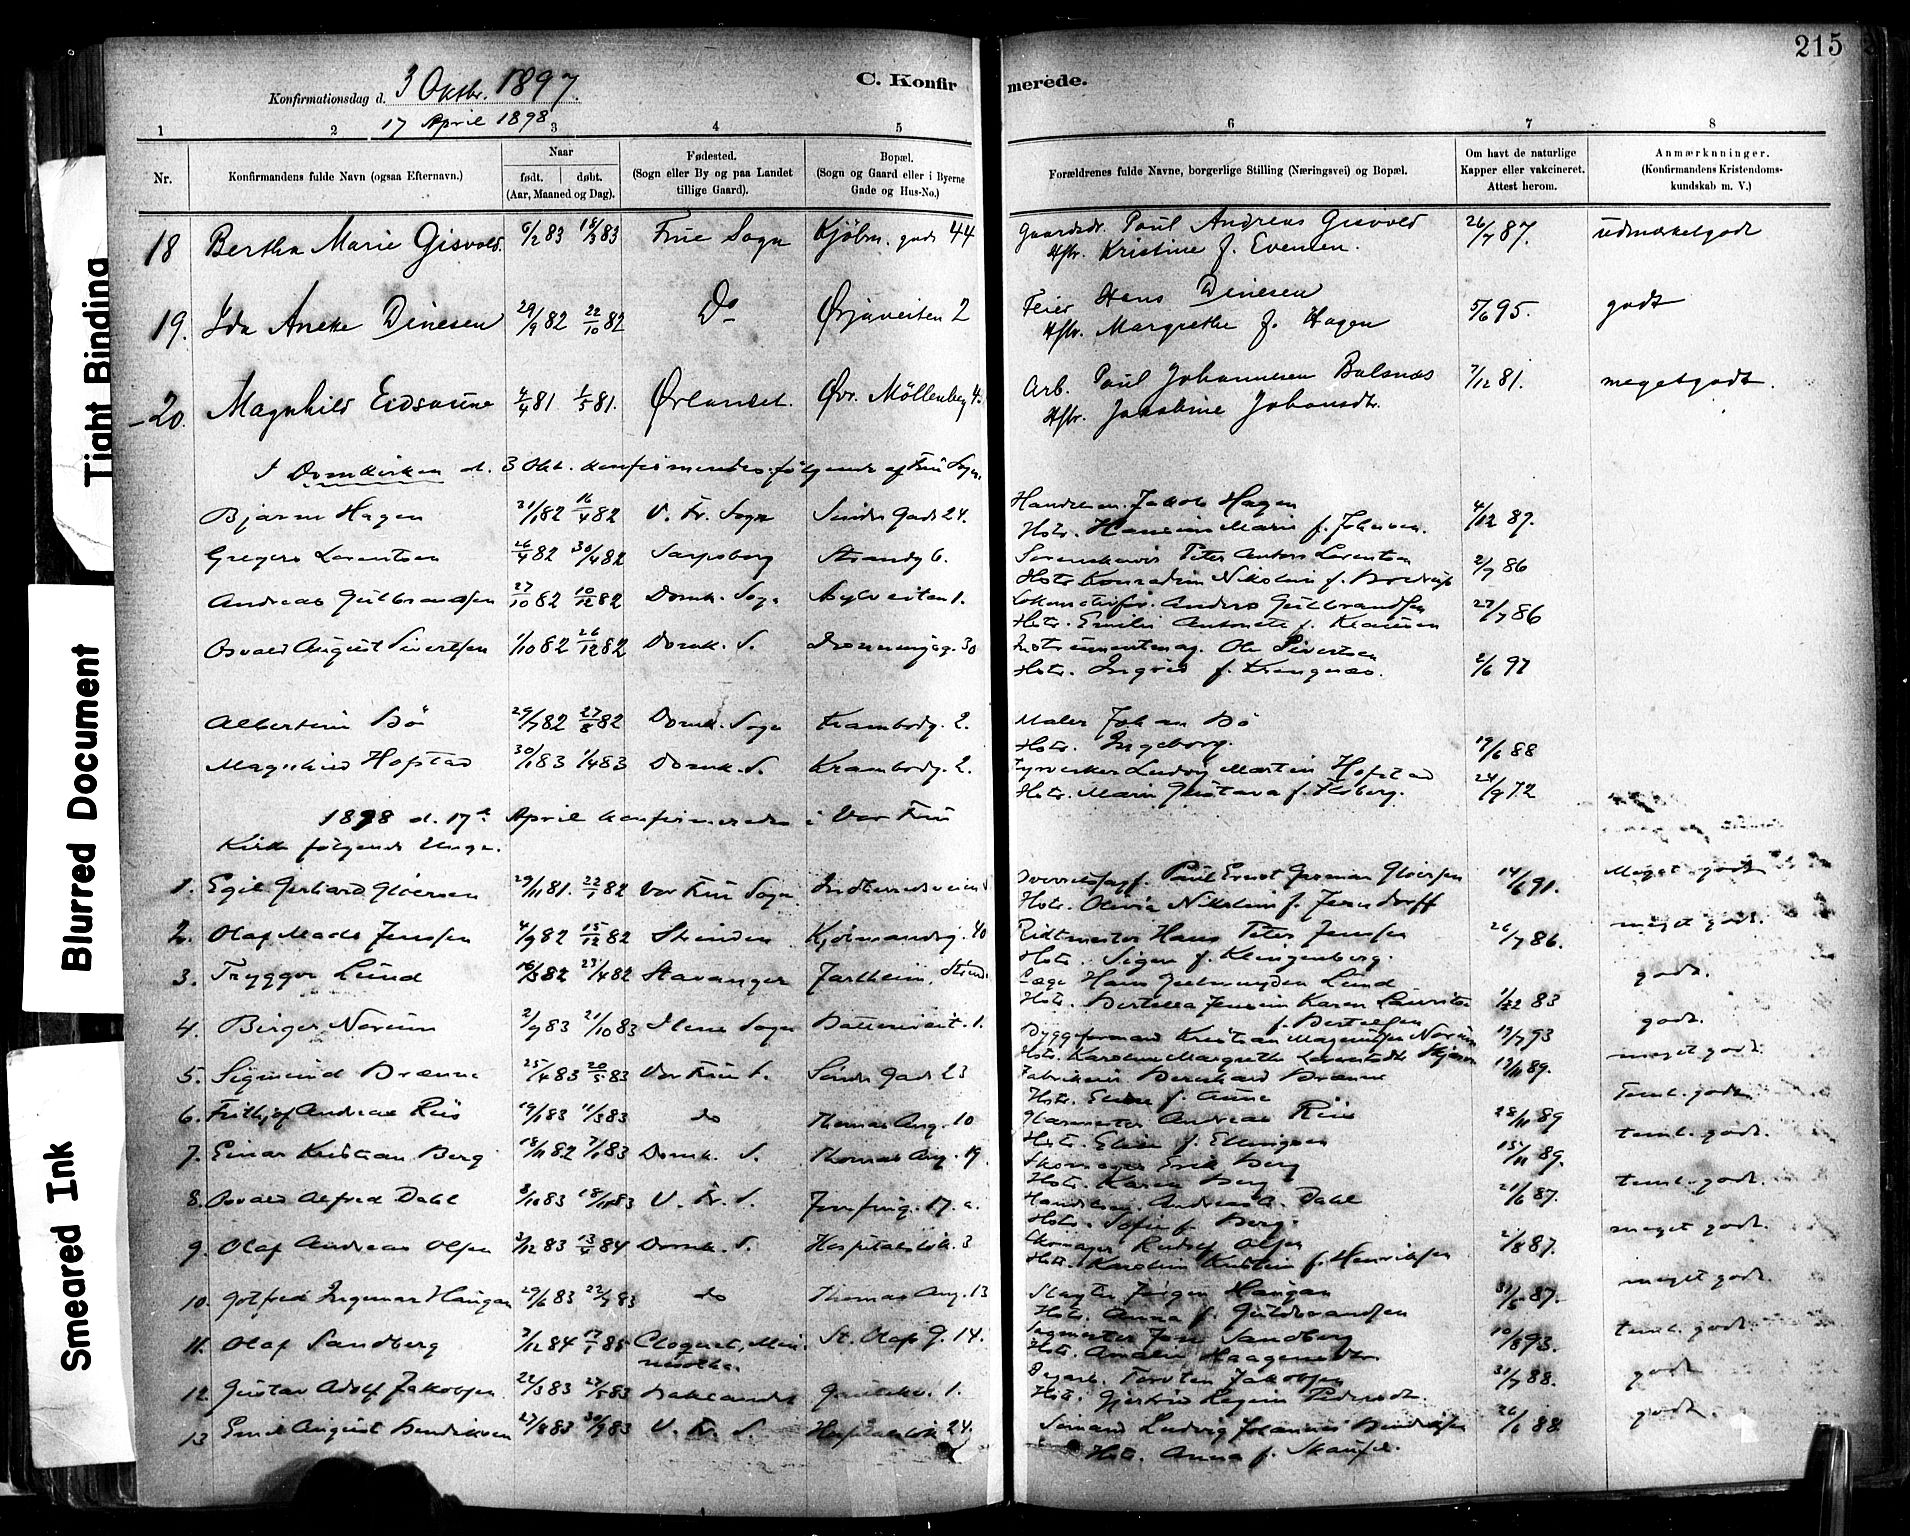 215
Konfirmationsdag d. 3 Oktbr. 1897.
17 April 1898
C. Konfirmerede.
1 2 3 4 5 6 7 8
Nr. Konfirmandens fulde Navn (ogsaa Efternavn). Naar født. døbt. (Aar, Maaned og Dag). Fødested. (Sogn eller By og paa Landet tillige Gaard). Bopæl. (Sogn og Gaard eller i Byerne Gade og Hus-No.) Forældrenes fulde Navne, borgerlige Stilling (Næringsvei) og Bopæl. Om havt de naturlige Kopper eller vakcineret. Attest herom. Anmærkninger. (Konfirmandens Kristendomskundskab m. V.)
18 Bertha Marie Gisvold. 6/2 83 18/3 83 Frue Sogn Kjöbm. gade 44 Gaardsbr. Paul Andreas Gisvold 26/7 87. udmærketgodt
Hstr. Kristine f. Evensen.
19. Ida Aneke Dinesen 29/9 82 22/10 82 Do Ørjaveiten 2 Feier Hans Dinesen 5/6 95. godt
Hstr. Margrethe f. Hagen
20. Magnhild Eidsaune 2/4 81 1/5 81. Ørlandet. Øvr. Möllenberg 4 Arb. Paul Johannesen Balsnæs 7/12 81. megetgodt.
Hstr. Jakobine Johansdtr.
I Domkirken d. 3 Okt. konfirmeredes følgende af Frue Sogn.
Bjarne Hagen 21/1 82 16/4 82 V. Fr. Sogn Söndre Gade 24. Handelsm. Jakob Hagen 4/12 87.
Hstr. Marie f. Johnsen.
Gregers Lorentsen 26/4 82 30/4 82 Sarpsborg Strandg 6. Peter Anton Lorentsen 2/7 86
Hstr. Nikoline f.
Andreas Gulbrandsen 27/10 82 10/12 82 Domk. Sogn 1. Anders Gulbrandsen 27/7 86
Hstr. Emilie Antonette f. Klausen
Osvald August Sivertsen 1/10 82 26/12 82 Domk. S. Dronningsg. 30 Instrumentmag. Ole Sivertsen 2/6 97
Hstr. Ingrid f.
Albertine Bö 29/7 82 27/8 82 Domk. Sogn Krambodg. 2. Maler Johan Bö
Hstr. Ingeborg. 19/6 88
Magnhild Hofstad 30/1 83 1/4 83 Domk. S. Krambodg. 2. Fyrverker Ludvig Martin Hofstad
Hstr. Marie Gustava f. 24/9 72
1898 d. 17de April konfirmeredes i Vor Frue
Kirke følgende Unge.
1. Egil Gerhard Gløersen 29/11 81. 22/1 82 Vor Frue Sogn Indherredsveien Paul Ernst Gløersen 14/6 91. Meget godt
Hstr. Olivia Nikoline f. Jerndorff
2. Olaf Mads Jenssen 4/9 82 15/12 82 Stenden Kjöbmandsg. 40 Ridtmester Hans Peter Jenssen 26/7 86. meget godt.
Hstr. Signe f. Klingenberg.
3. Tryggve Lund 16/3 82 23/4 82 Stavanger Jarlheim, Strind. Læge Hans Lund godt.
Hstr. Karen 1/12 83
f. Bertelsen
4. Birger Norum 2/9 83 21/10 83 Ilens Sogn 1. Byggeformand Kristian Norum 19/7 93 godt.
Hstr. Karoline Margrethe
5. Sigmund Brænne 25/4 83 20/5 83 Vor Frue S. Söndre Gade 23 Fabrikeier Bernhard Brænne 19/11 89. meget godt.
Hstr. f. Aune
6. Frithjof Andreas Riis 19/1 83 11/3 83 do Thomas Ang. 10 Andreas Riis 28/11 89 Teml. godt.
Hstr. Elise f. Ellingsen
7. Einar Kristian Berg 18/11 82 7/1 83 Domk. S. Thomas Ang. 19 Skomager Erik Berg 15/11 89. teml. godt.
Hstr. Karen Berg
8. Osvald Alfred Dahl 3/10 83 18/11 83 V. Fr. S. Jomfrug. 17. a. Handelsm. Andreas Dahl 21/6 87. teml. godt.
Hstr. Sofie f. Berg.
9. Olaf Andreas Olsen 3/12 83 13/4 84 Domk. S. 3 Skomager Rudolf Olsen 2/8 87. meget godt.
Hstr. Karoline f. Henriksen
10. Gotfred Ingemar Haugan 29/6 83 22/7 83 do Thomas Ang. 13 Slagter Jørgen Haugan 87. meget godt.
Hstr. Anna f. Guldbrandsen
11. Olaf Sandberg 3/12 84 85 Cloquet, Min- St. Olafs G. 14. Sandberg 10/8 93. teml. godt.
nesotta. Hstr. Amalie
12. Gustav Adolf Jakobsen 22/3 83 27/5 83 Baklandet 1. Torsten Jakobsen 31/7 88. godt.
Hstr. Gjertrud Regine
13 Emil August Bendiksen 27/8 83 30/9 83 V. Fr. S. 24. Sömand Ludvig Johannes Bendiksen 26/6 88 godt.
Hstr. Anna f.
Tight Binding
Blurred Document
Smeared Ink